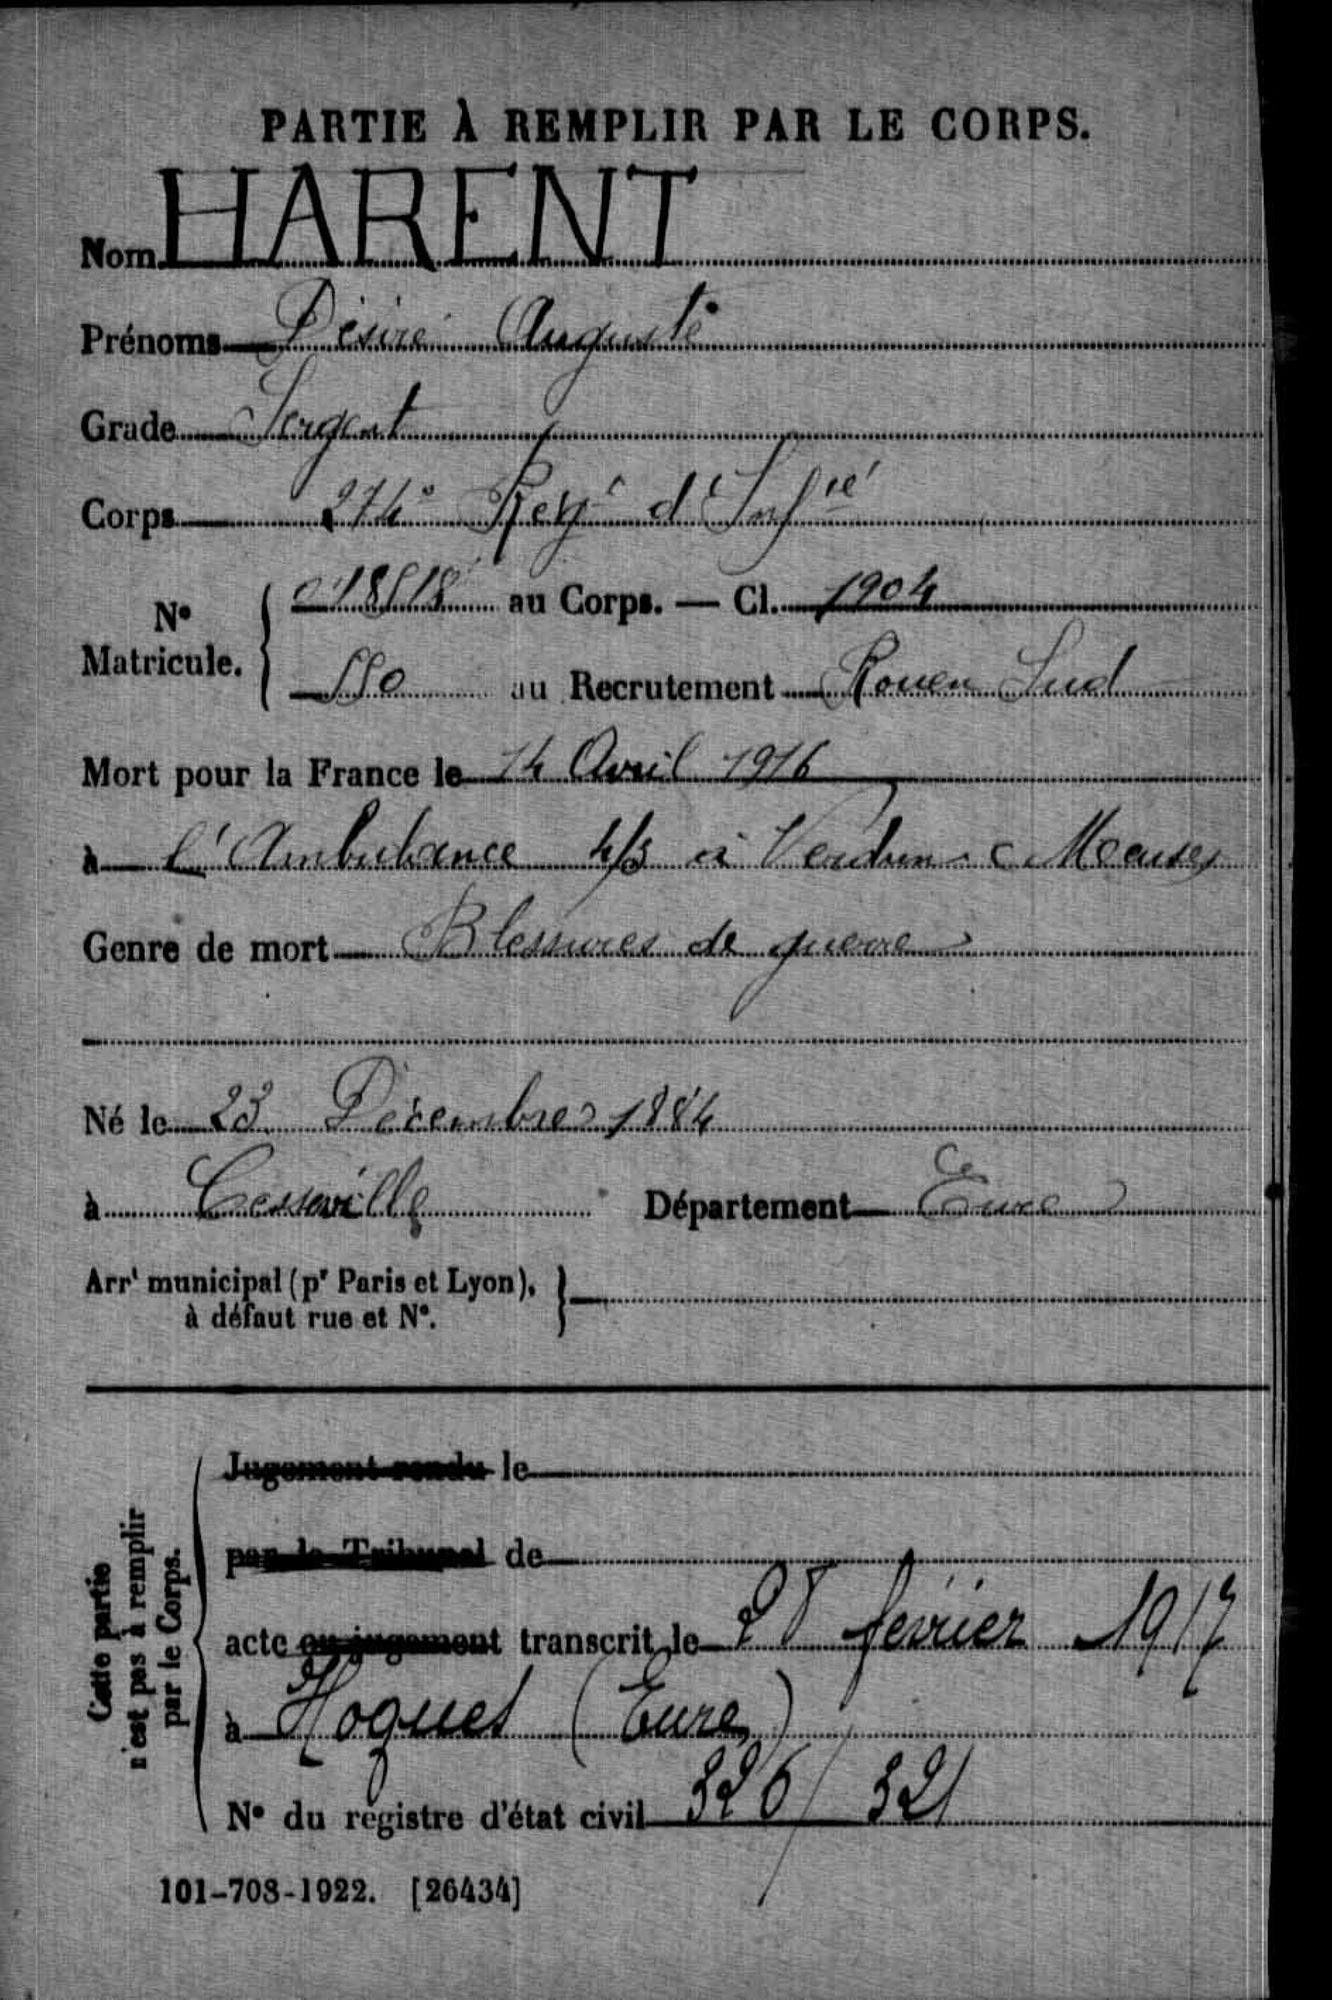 PARTIE À REMPLIR PAR LE CORPS.
Nom HARENT
Prénoms Désiré Auguste
Grade Sergent
Corps 274e Regt d'Infie
No Matricule. { 018518 au Corps. — Cl. 1904
550 au Recrutement Rouen Sud
Mort pour la France le 14 Avril 1916
à l'Ambulance 4/3 à Verdun (Meuse)
Genre de mort Blessures de guerre
Né le 23 Décembre 1884
à Cesseville Département Eure
Arrt municipal (pr Paris et Lyon), à défaut rue et No. }
Cette partie n'est pas à remplir par le Corps.
Jugement rendu le
par le Tribunal de
acte ou jugement transcrit le 28 février 1917
à (Eure)
No du registre d'état civil 326/321
101-708-1922. [26434]